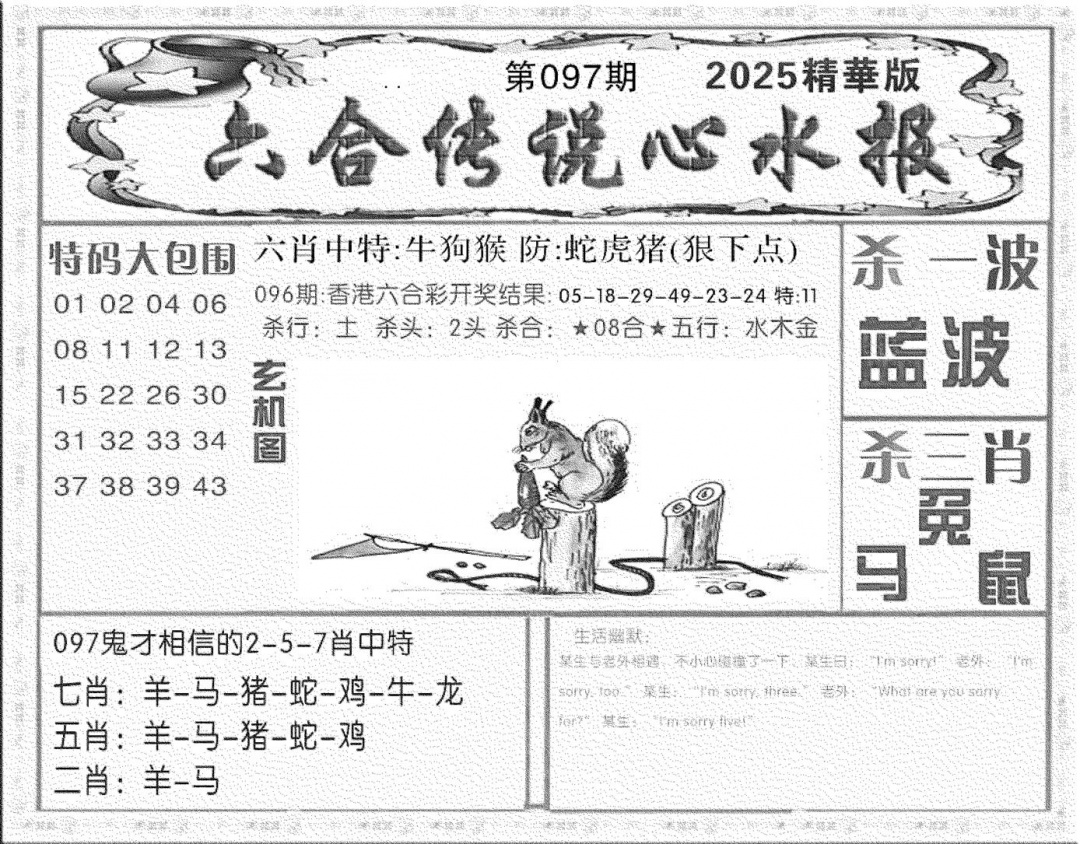 第097期
2025精華版
六合传说心水报
特码大包围
01 02 04 06
08 11 12 13
15 22 26 30
31 32 33 34
37 38 39 43
六肖中特:牛狗猴 防:蛇虎猪(狠下点)
096期:香港六合彩开奖结果: 05-18-29-49-23-24 特:11
杀行：土 杀头：2头 杀合：★08合★五行：水木金
玄机图
杀一波
蓝波
杀三肖
兔
马 鼠
097鬼才相信的2-5-7肖中特
七肖：羊-马-猪-蛇-鸡-牛-龙
五肖：羊-马-猪-蛇-鸡
二肖：羊-马
生活幽默：
某生与老外相遇，不小心碰撞了一下，某生曰：“I'm sorry!” 老外：“I'm
sorry, too.” 某生：“I'm sorry, three.” 老外：“What are you sorry
for?” 某生：“I'm sorry five!”